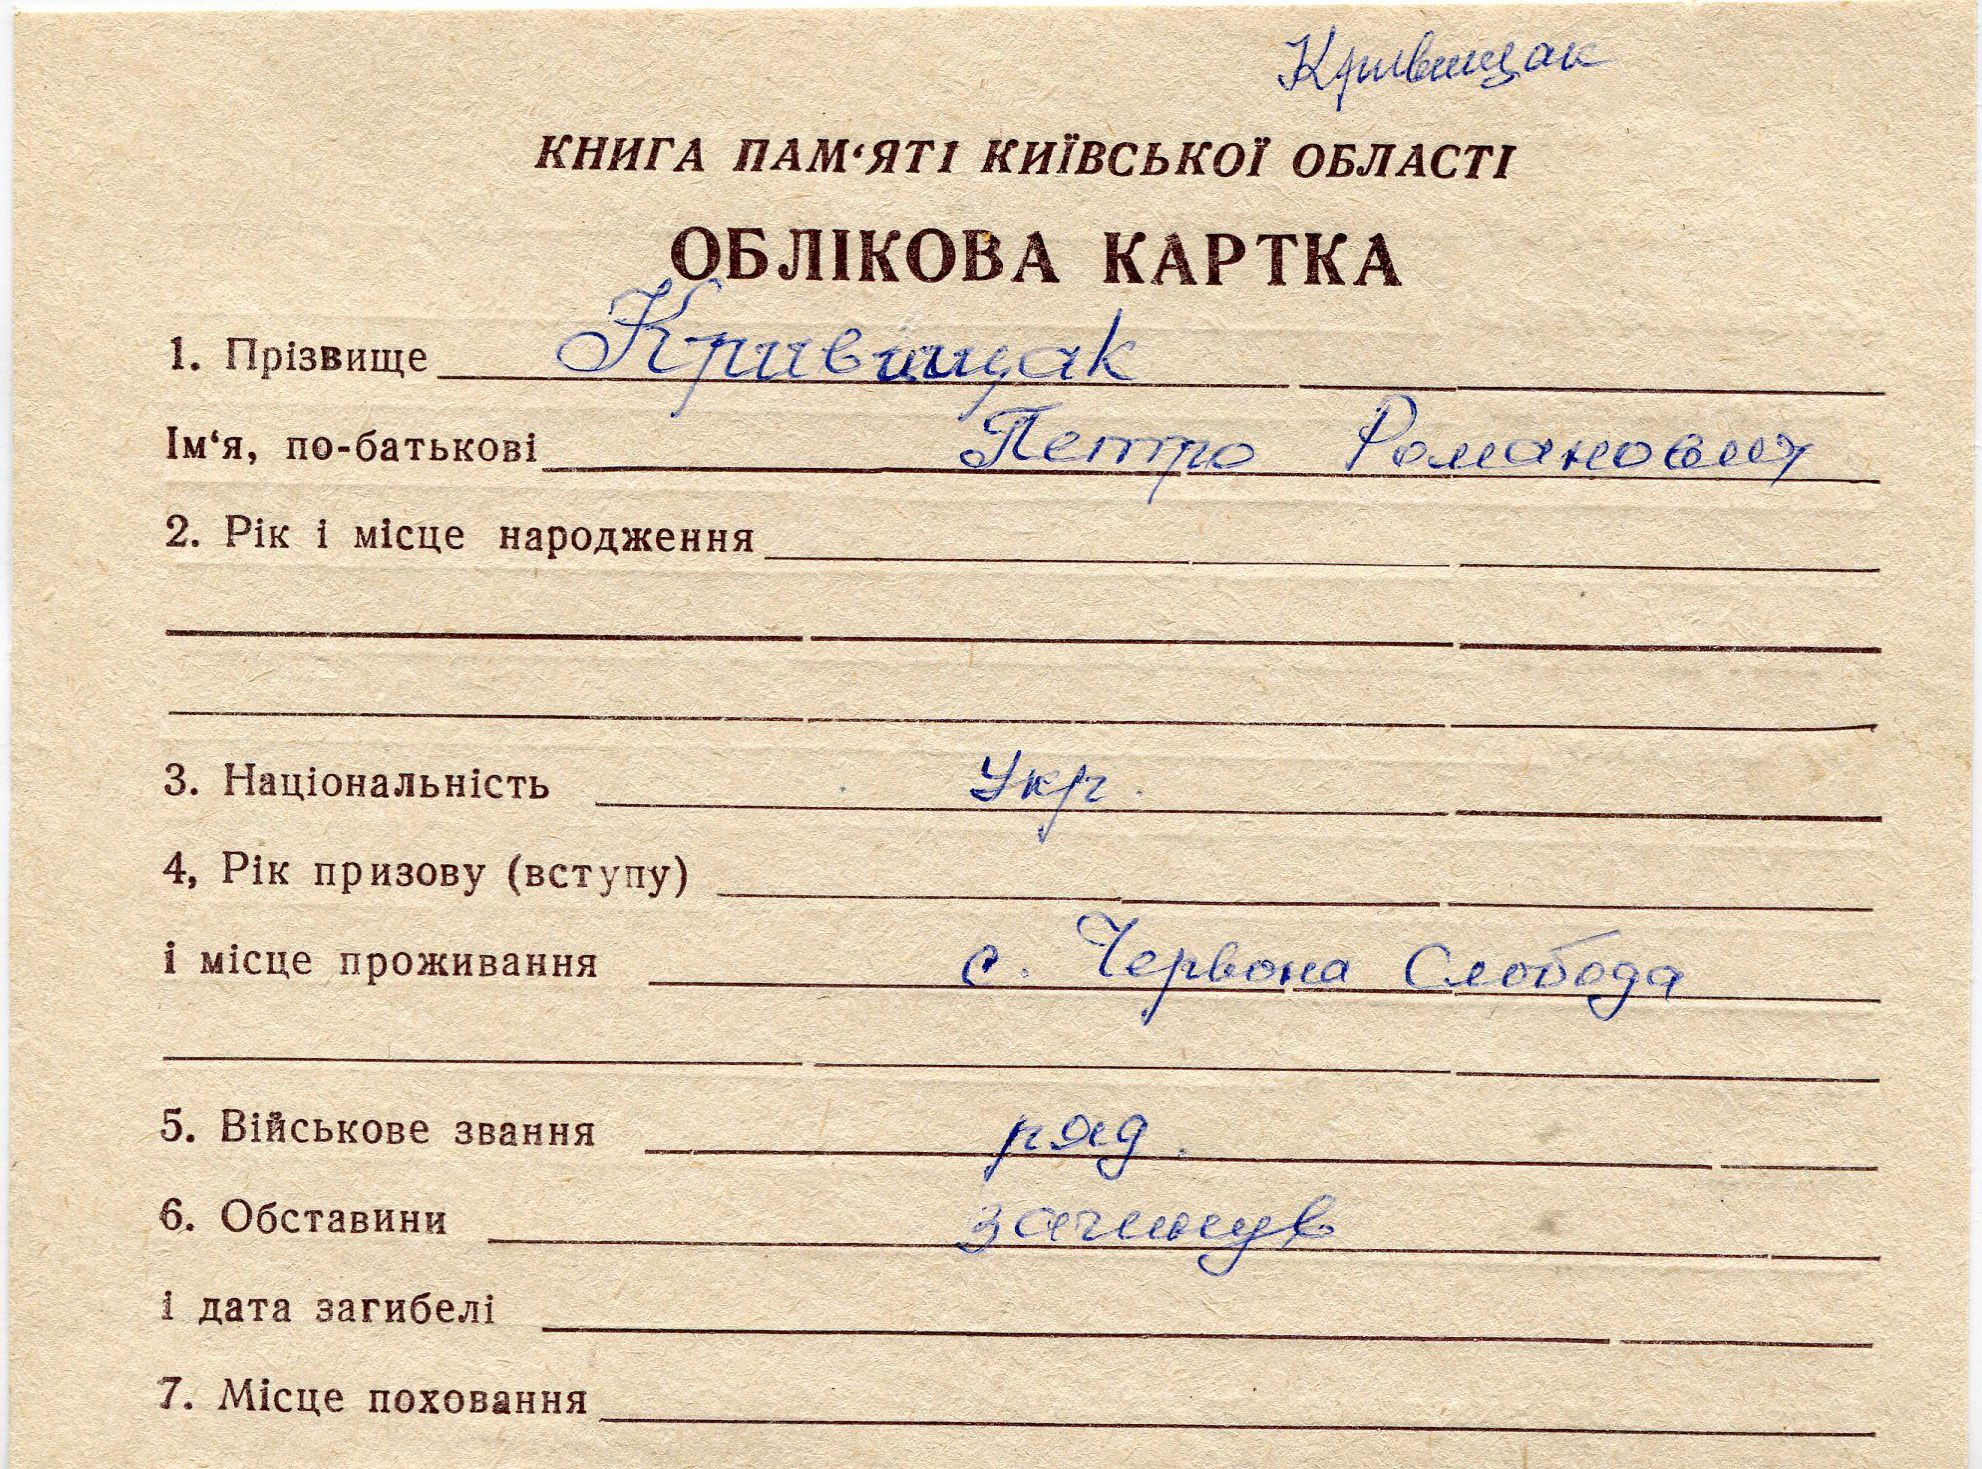 Кривицак
КНИГА ПАМ‘ЯТІ КИЇВСЬКОЇ ОБЛАСТІ
ОБЛІКОВА КАРТКА
1. Прізвище Кривицак
Ім‘я, по-батькові Петро Романович
2. Рік і місце народження
3. Національність Укр.
4, Рік призову (вступу)
і місце проживання с. Червона Слобода
5. Військове звання ряд.
6. Обставини загинув
і дата загибелі
7. Місце поховання